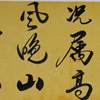 况属高
風晚山